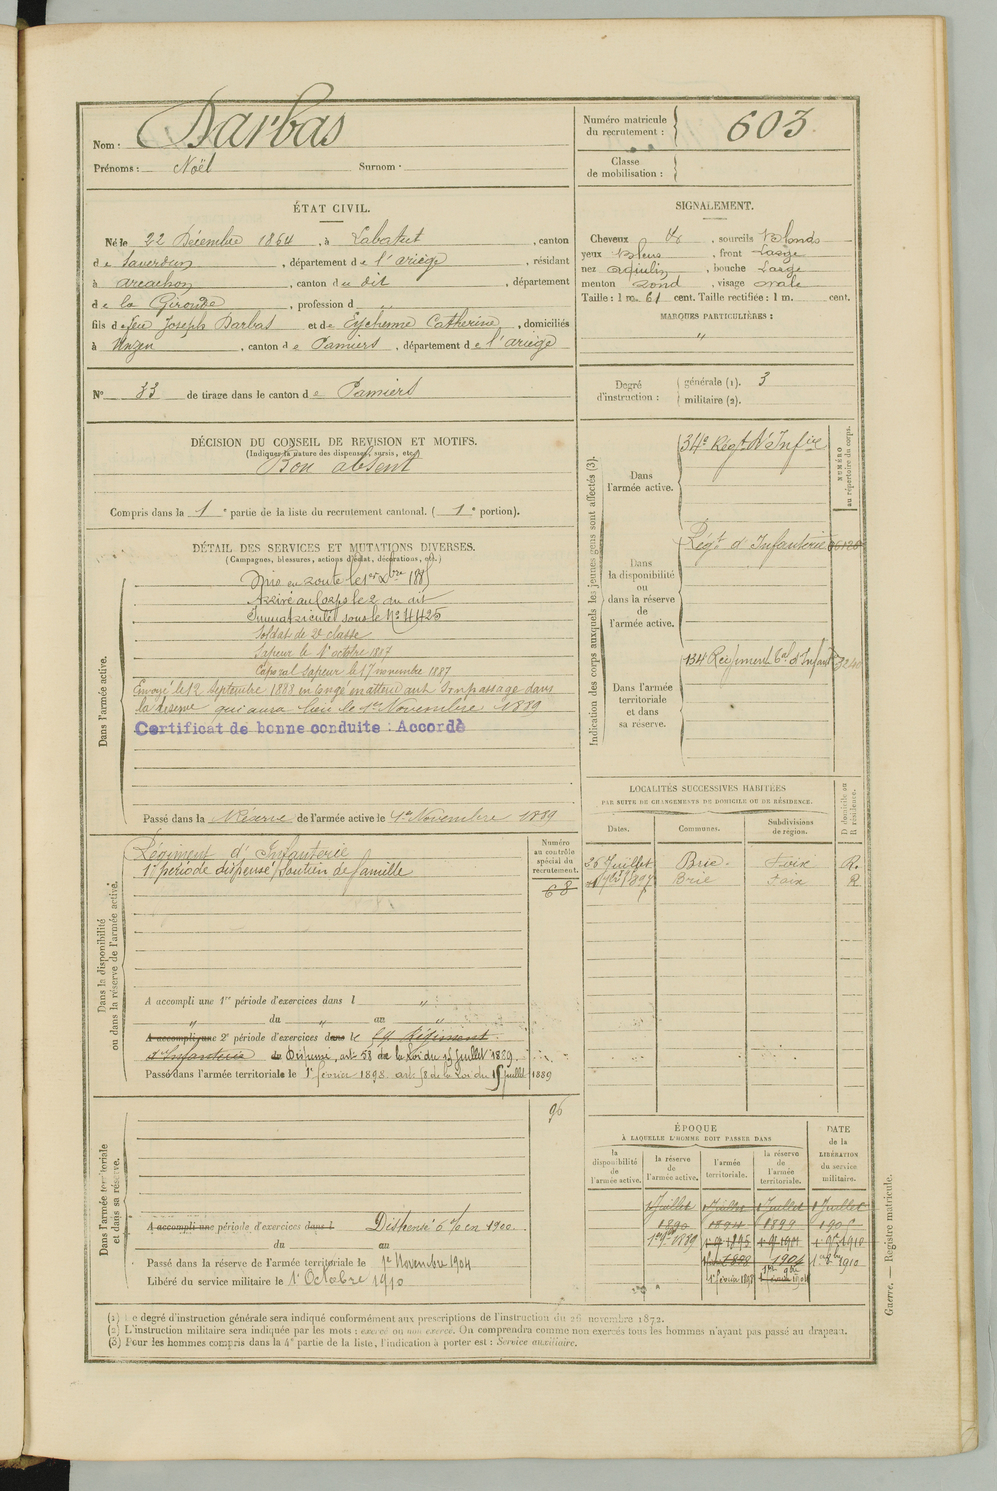 Nom : Darbas
Prénoms : Noël Surnom :
Numéro matricule du recrutement : 603
Classe de mobilisation :
ÉTAT CIVIL.
Né le 22 Décembre 1864, à Labatut, canton
de Saverdun, département de l'ariège, résidant
à arcachon, canton du dit, département
de la Gironde, profession d
fils de feu Joseph Darbas et de Eychenne Catherine, domiciliés
à Unzen, canton de Pamiers, département de l'ariège
N° 33 de tirage dans le canton de Pamiers
SIGNALEMENT.
Cheveux , sourcils Blonds
yeux Bleus, front Large
nez aquilin, bouche Large
menton rond, visage ovale
Taille : 1 m. 61 cent. Taille rectifiée : 1 m. cent.
MARQUES PARTICULIÈRES :
"
Degré d'instruction : générale (1). 3
militaire (2).
DÉCISION DU CONSEIL DE REVISION ET MOTIFS.
(Indiquer la nature des dispenses, sursis, etc.)
Bon absent
Compris dans la 1e partie de la liste du recrutement cantonal. ( 1e portion).
DÉTAIL DES SERVICES ET MUTATIONS DIVERSES.
(Campagnes, blessures, actions d'éclat, décorations, etc.)
Dans l'armée active.
Mis en route le 1er Xbre 1885
Arrivé au Corps le 2 du dit
Immatriculé sous le N° 4425
Soldat de 2e classe
Sapeur le 1er octobre 1887
Caporal sapeur le 17 novembre 1887
Envoyé le 12 Septembre 1888 en congé en attendant son passage dans
la réserve qui aura lieu le 1er Novembre 1889
Certificat de bonne conduite : Accordé
Passé dans la Réserve de l'armée active le 1er Novembre 1889
Indication des corps auxquels les jeunes gens sont affectés (3).
NUMÉRO au répertoire du corps.
Dans l'armée active.
34e Régt d'Infie
Dans la disponibilité ou dans la réserve de l'armée active.
Régt d'Infanterie
Dans l'armée territoriale et dans sa réserve.
134 Régiment tal d'Infant
Dans la disponibilité ou dans la réserve de l'armée active.
Numéro au contrôle spécial du recrutement.
68
Régiment d'Infanterie
1e période dispensé Soutien de famille
A accompli une 1re période d'exercices dans l "
" du " au "
A accompli une 2e période d'exercices dans le 59 Régiment
d'Infanterie du Dispensé, art. 58 de la Loi du 15 Juillet 1889.
Passé dans l'armée territoriale le 1er février 1898 art. 58 de la Loi du 15 Juillet 1889
LOCALITÉS SUCCESSIVES HABITÉES
PAR SUITE DE CHANGEMENTS DE DOMICILE OU DE RÉSIDENCE.
Dates. Communes. Subdivisions de région. D domicile ou R résidence.
Juillet Brie. Foix R.
1897 Brie Foix R
Dans l'armée territoriale et dans sa réserve.
96
A accompli une période d'exercices dans l Dispensé 6 % en 1900.
du au
Passé dans la réserve de l'armée territoriale le 1er Novembre 1904
Libéré du service militaire le 1er Octobre 1910
ÉPOQUE
À LAQUELLE L'HOMME DOIT PASSER DANS
DATE de la LIBÉRATION du service militaire.
la disponibilité de l'armée active.
la réserve de l'armée active.
l'armée territoriale.
la réserve de l'armée territoriale.
1 Juillet 1 Juillet 1 Juillet 1 Juillet
1890 1899
1889 1895 1901 1910
1904 1910
1er février 1898
(1) Le degré d'instruction générale sera indiqué conformément aux prescriptions de l'instruction du 26 novembre 1872.
(2) L'instruction militaire sera indiquée par les mots : exercé ou non exercé. On comprendra comme non exercés tous les hommes n'ayant pas passé au drapeau.
(3) Pour les hommes compris dans la 4e partie de la liste, l'indication à porter est : Service auxiliaire.
Guerre. — Registre matricule.